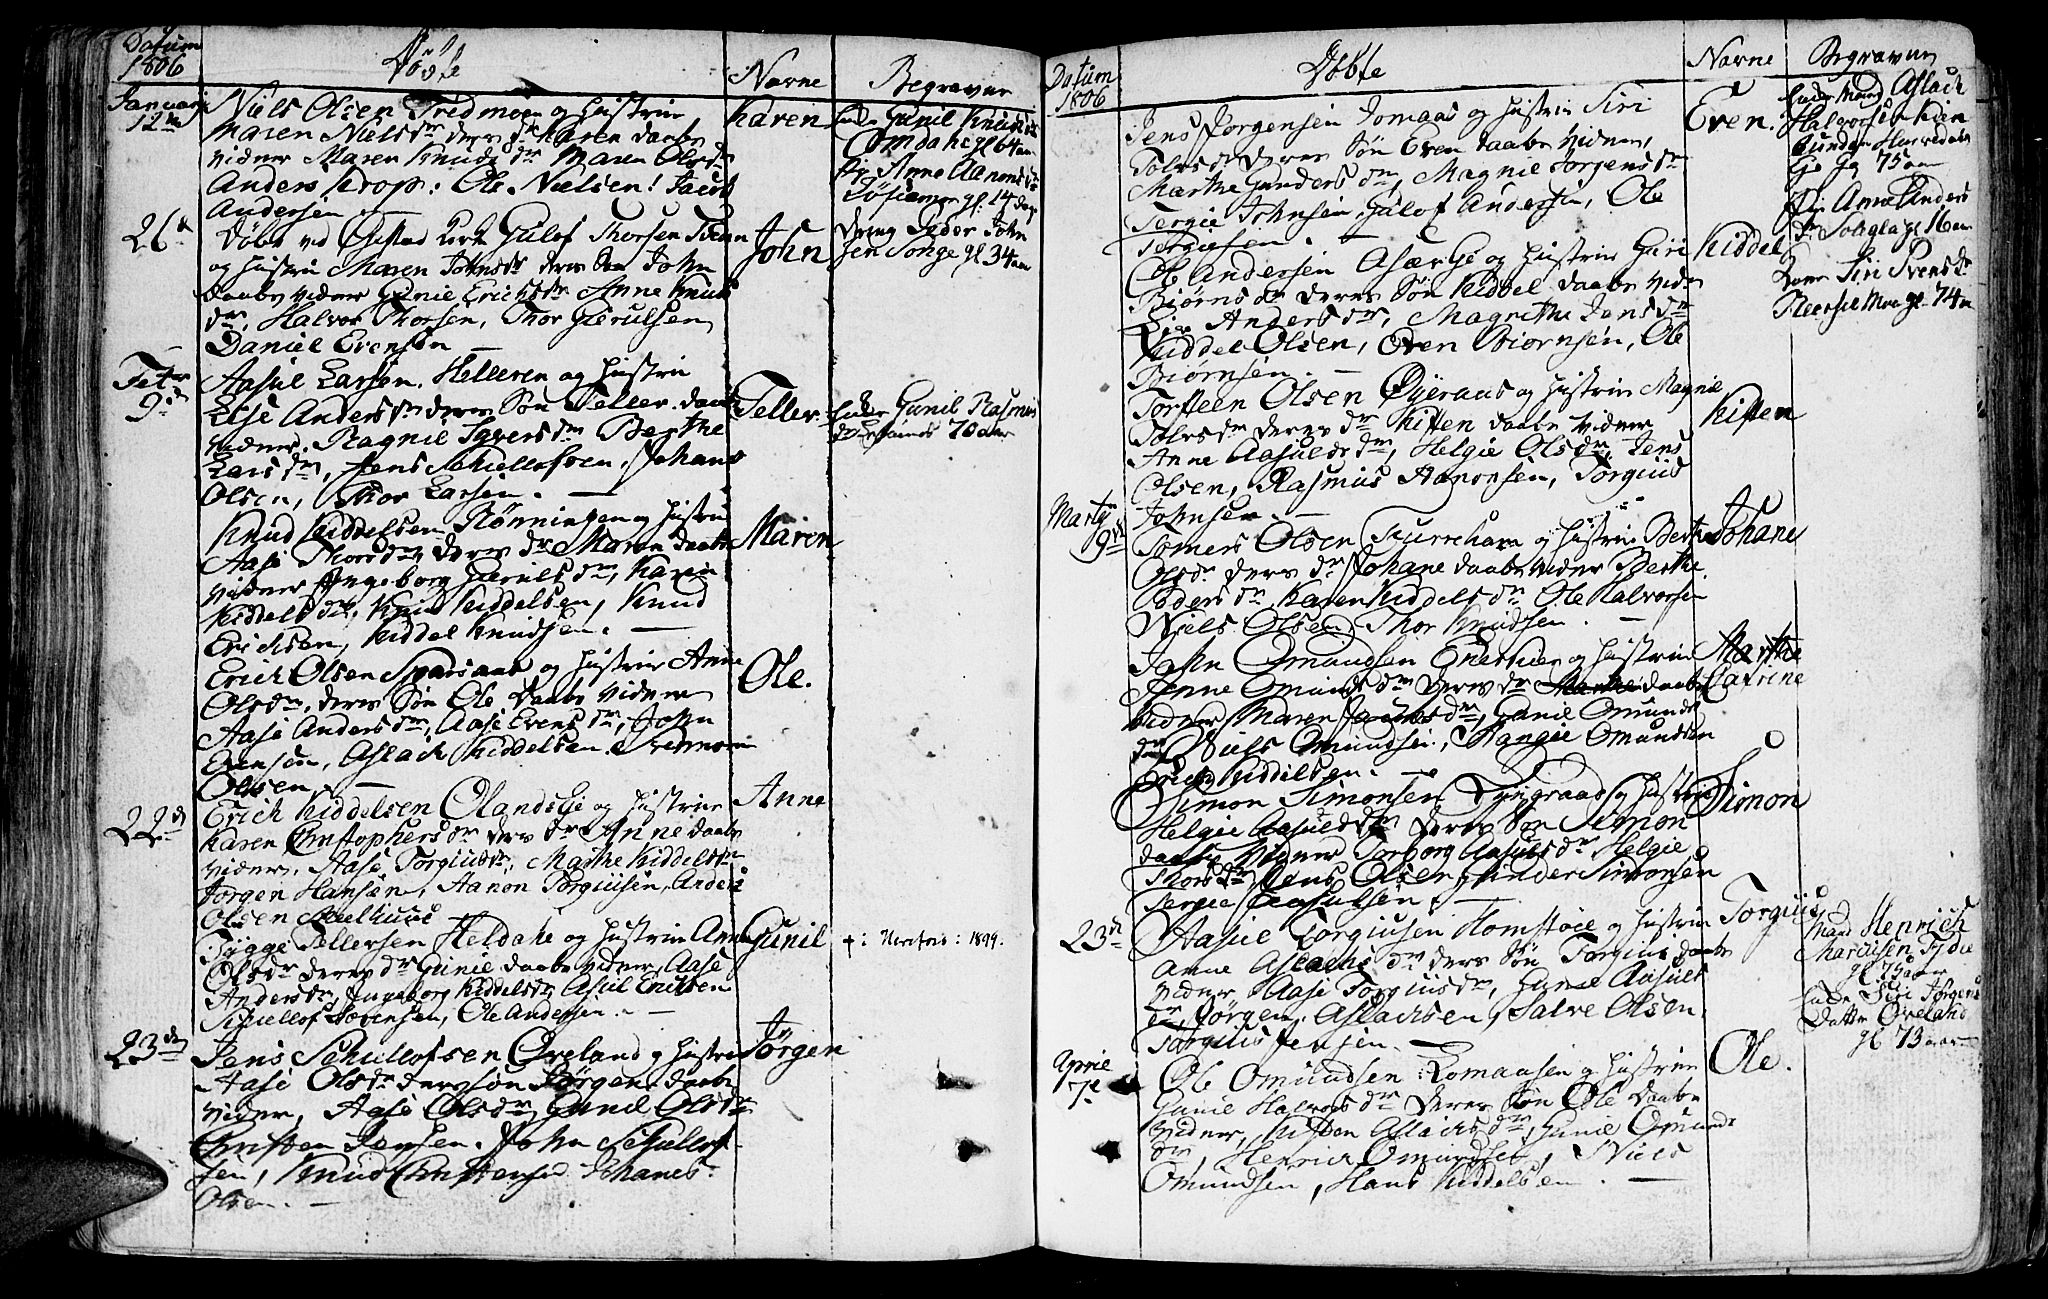 Datum
1806
Döbte
Navne
Begravne
Januarj
12te
Niels Olsen Tredmoen og Hustrue
Maren Nielsdr deres dr Karen daabs
Vidner Maren Knudsdr Maren Olsdr
Anders Krop: Ole Nielsen! Jacob
Andersen
Karen
Gunil Knudsdr
Omdahl gl 64 aar
Anne Aanonsdr
gl: 14 dage
26de
Döbt ved Gulof Thorsen
og Hustrue Maren Johnsdr deres Sön John
daabs vidner Gunie Erichsdr Anne Knuds
dr, Halvor Thorsen, Thor Gierulsen
Daniel Evensen —
John
Dreng Peder John
sen Songe gl 34 aar
Febr
9de
Aasul Larsen Helleren og Hustrue
Else Andersdr deres Sön Teller daabs
Vidner Ragnil Iversdr Berthe
Larsdr, Jens Schullofsen, Johans
Olsen, Thor Larsen. —
Teller
Gunil Rasmus
70 aar
Knud Kiddelsen Rönningen og Hustrue
Aase Thorsdr deres dr Maren daabs
vidner Ingeborg Gierulsdr, Karen
Kiddelsdr, Knud Kiddelsen, Knud
Erichsen, Kiddel Knudsen. —
Maren
Erich Olsen Sparsaas og Hustrue Anne
Olsdr, deres Sön Ole Daabs Vidner
Aase Andersdr, Aase Evensdr, John
Evensen, Aslach Kiddelsen
Olsen, —
Ole.
22de
Erich Kiddelsen Olandslie og Hustrue
Karen Christophersdr deres dr Anne daabs
vidner, Aase Torgiusdr, Marthe Kiddelsdr
Jorgen Hansen, Aanon Torgiusen, Anders
Olsen
Anne
Tygge Tellersen Heldahl og Hustrue Anne
Olsdr deres dr Gunil daabs vidner, Aase
Andersdr, Ingeborg Kiddelsdr, Asul Ericksen
Schullof Sörensen, Ole Andersen. —
Gunil
+: 1899.
23de
Jens Schullofsen Öveland og Hustrue
Aase Olsdr deres sön Jörgen daabs
vidner, Aase Olsdr, Gunil Olsdr
Christen Jensen, John Schullof
sen, Knud Christensen Johanes
Olsen. —
Jörgen
Datum
1806
Döbte
Navne
Begravne
Jens Jorgensen Jomaas og Hustrue Siri
Tolvsdr deres Sön Even daabs vidner,
Marthe Gundersdr, Magnil Jorgensdr
Tergie Johnsen, Gulof Andersen, Ole
Tergiesen. —
Even.
Mand Aslach
Halvorsen
75 aar
Anne Anders
gl 16 aar
Ole Andersen og Hustrue Guri
Biörnsdr deres Sön Kiddel daabs vidn
Andersdr, Magrethe Jensdr
Kiddel Olsen, Even Biörnsen, Ole
Biörnsen. —
Kiddel
Kone Siri Svensdr
gl 74 aar
Torsteen Olsen Öyeraas og Hustrue Magnil
Tolvsdr deres dr Kisten daabs Vidner
Anne Aasulsdr, Helgie Olsdr, Jens
Olsen, Rasmus Aanonsen, Torgius
Johnsen. —
Kisten
Marty
9de
Somers Olsen og Hustrue Berthe
Olsdr deres dr Johane daabs vidner Berthe
Pedersdr Karen Kiddelsdr Ole Halvorsen
Niels Olsen Thor Knudsen. —
Johane
John Omundsen og Hustrue
Anne Omundsdr deres dr Marthe daabs
vidner Maren Gunil Omunds
dr Niels Omundsen, Omundsen
Erich Kiddelsen. —
Marthe
Catrine
Simon Simonsen Tyngraas og Hustrue
Helgie Aasulsdr deres Sön Simon
daabs Vidner Torborg Aasulsdr Helgie
Thorsdr Jens Olsen, Simonsen
Tergie Aasulsen. —
Simon
23de
Aasul Torgiusen Homstöel og Hustrue
Anne Aslachsdr deres Sön Torgius daabs
vidner Aase Torgiusdr, Gunil Aasuls
dr, Jörgen Aslachsen, Salve Olsen,
Torgius Jensen. —
Torgius
Mand Henrich
gl 75 aar
Siri Jörgens
Datter Öveland
gl 73 aar
Aprile
7de
Ole Omundsen og Hustrue
Gunil Halvorsdr deres Sön Ole daabs
Vidner, Kisten Aslachsdr, Gunil Omunds
dr, Henrich Omundsen, Niels
Omundsen, Hans Kiddelsen. —
Ole.